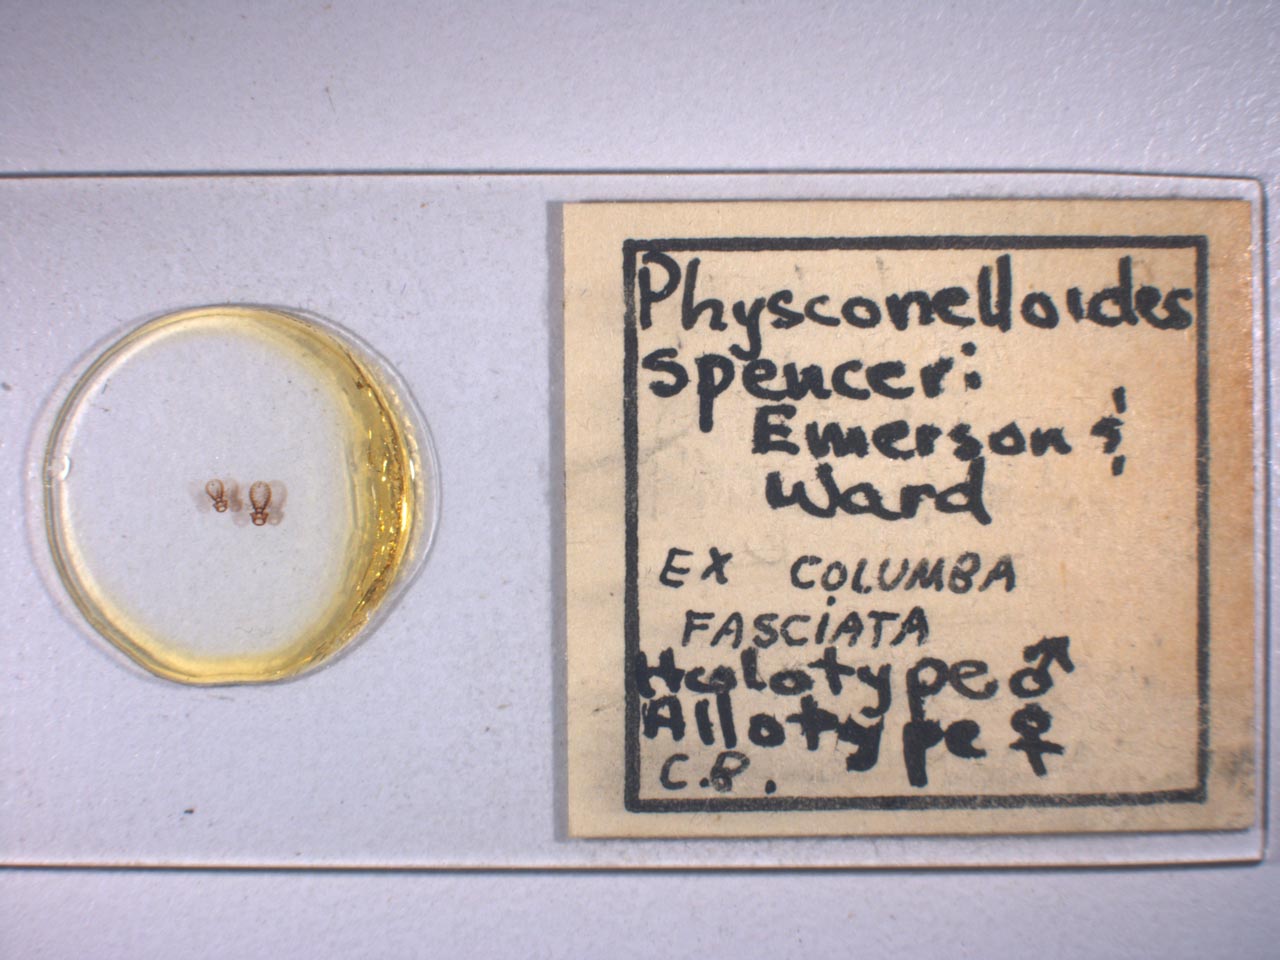 Physconelloides
spenceri
Emerson &
Ward
EX COLUMBA
FASCIATA
Holotype ♂
Allotype ♀
C.P.